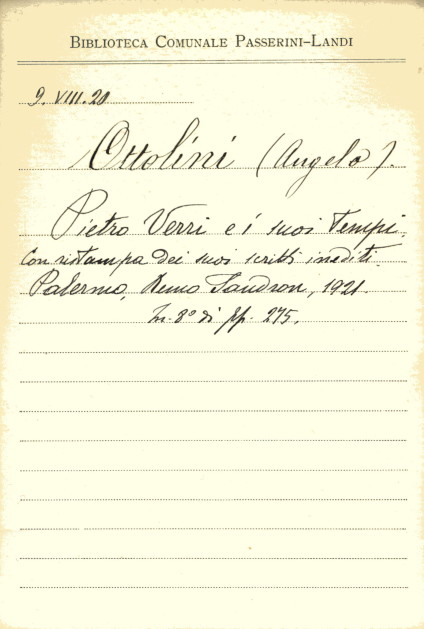 BIBLIOTECA COMUNALE PASSERINI-LANDI
9.VIII.20
Ottolini (Angelo).
Pietro Verri e i suoi tempi.
Con ristampa dei suoi scritti inediti.
Palermo, Remo Sandron, 1921.
In-8° di pp. 275.